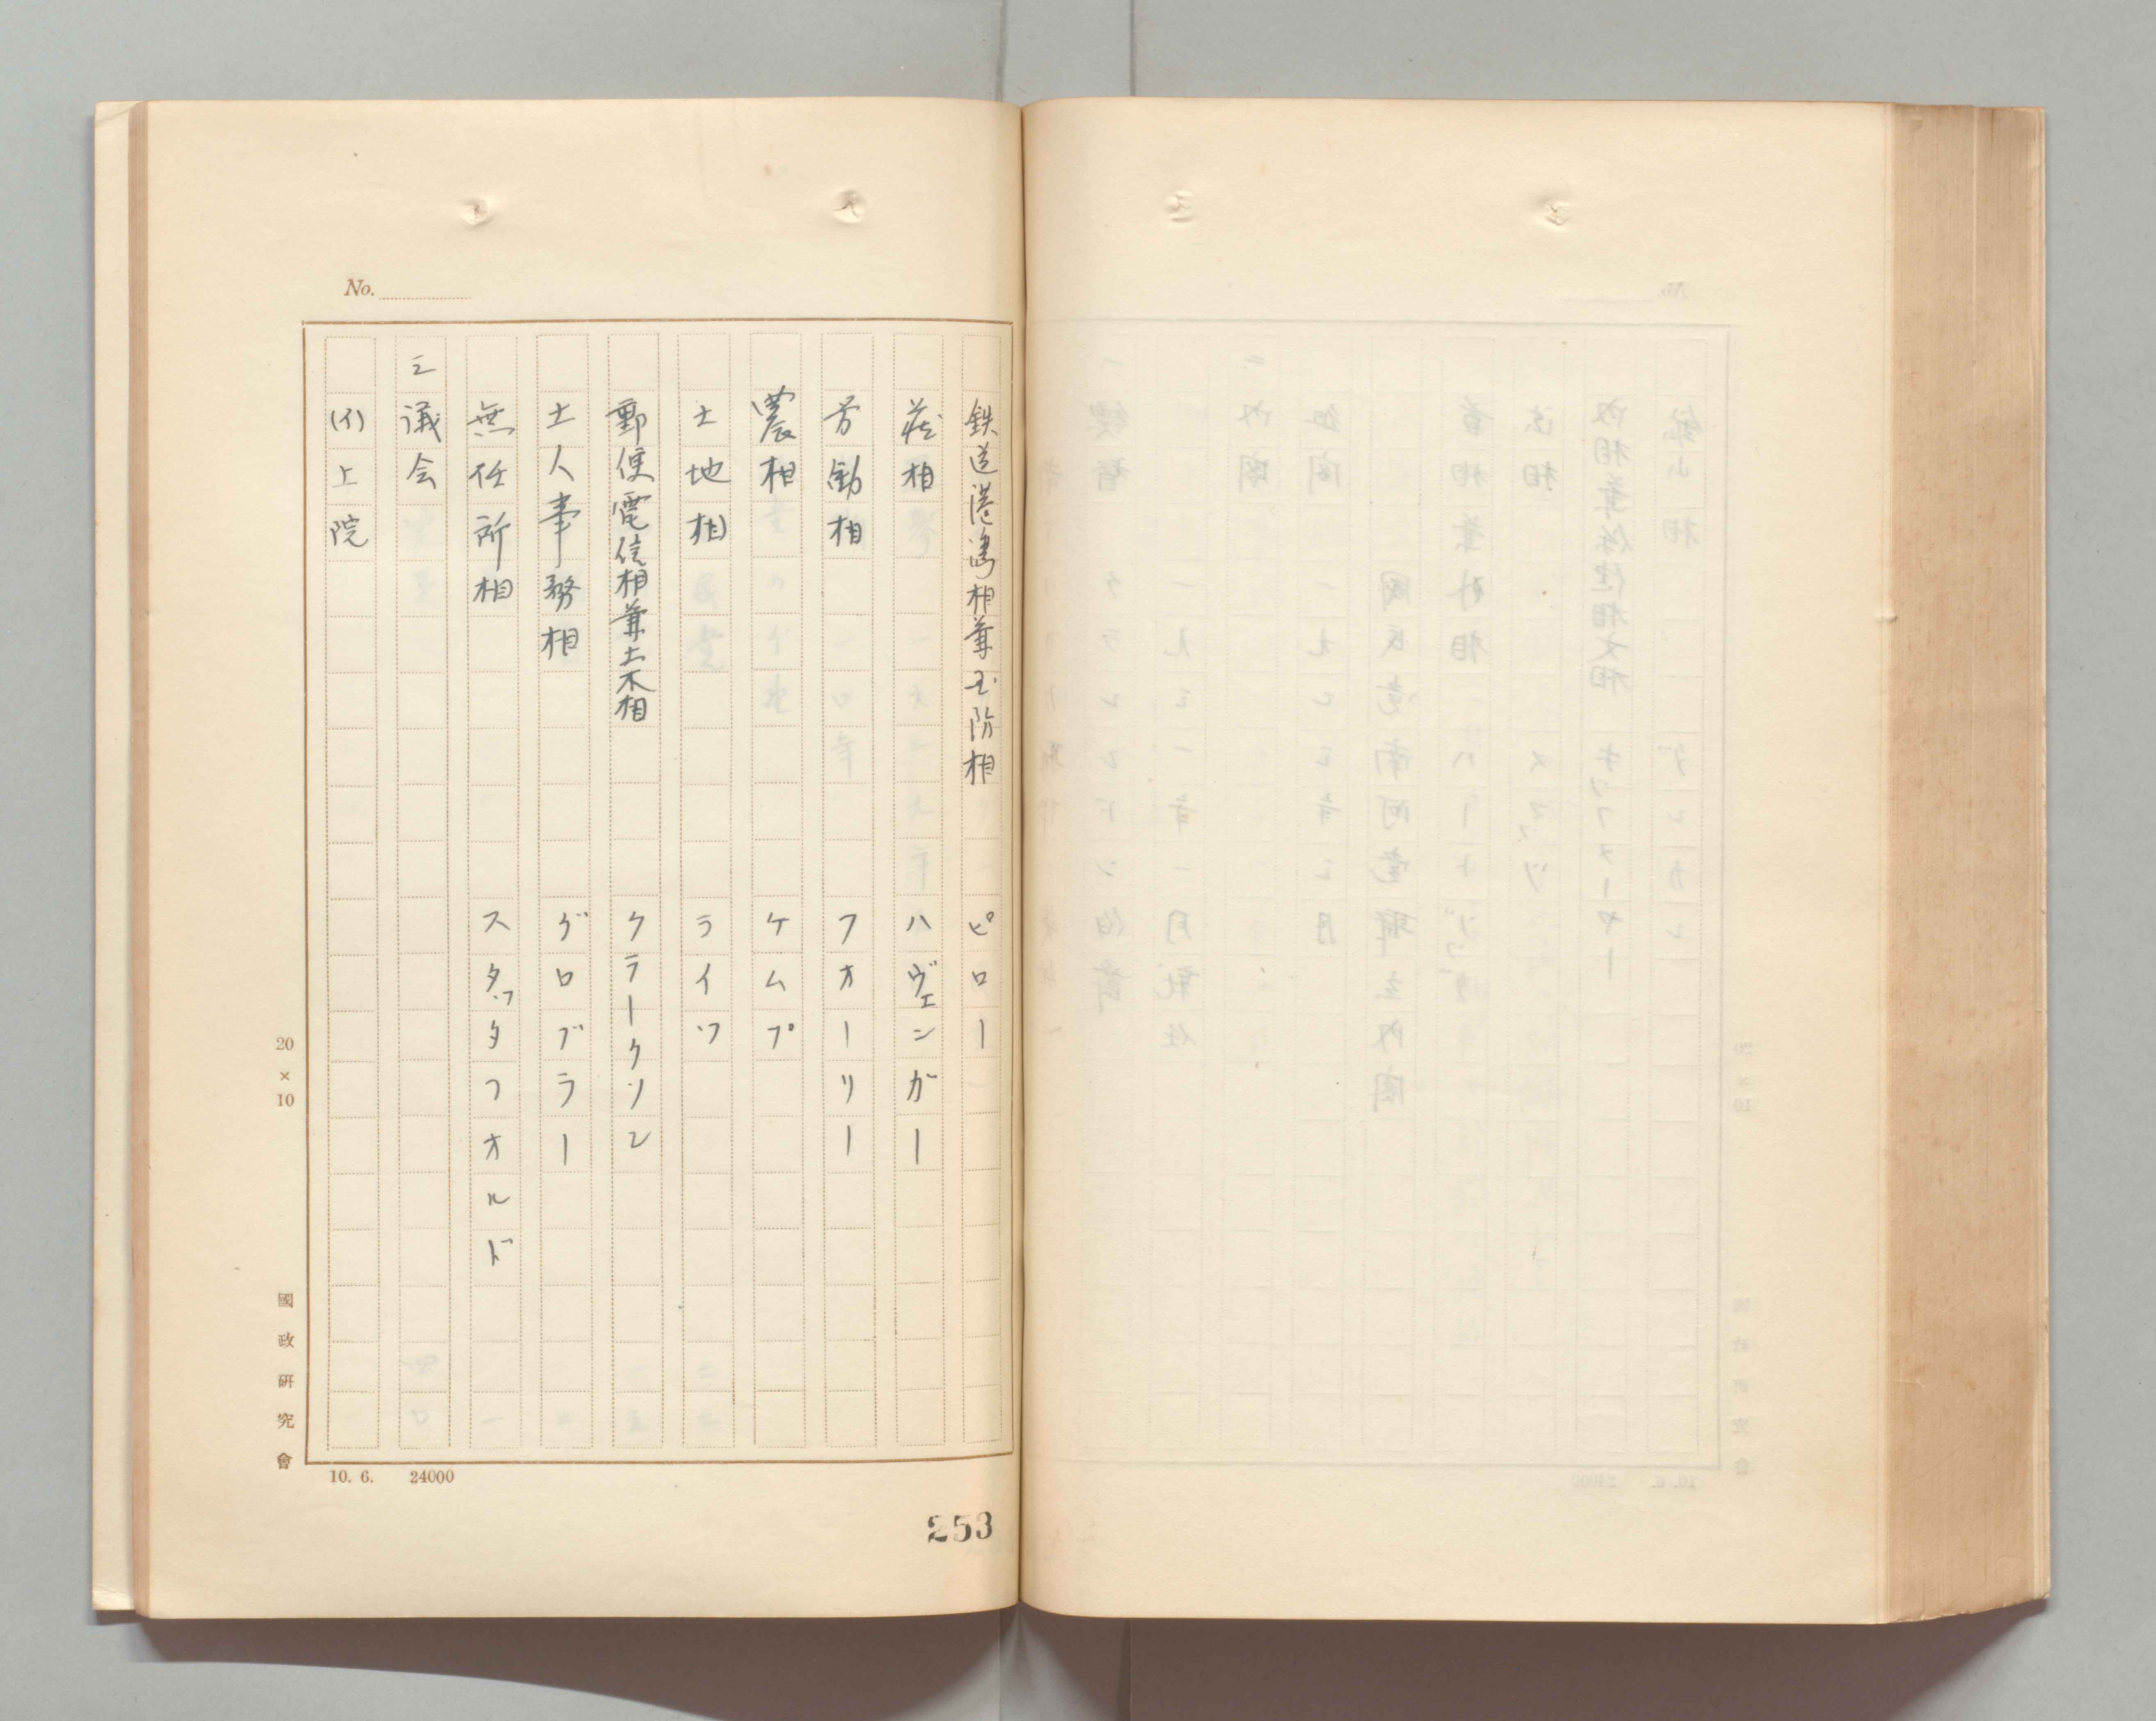 No.
鉄道港湾相兼国防相 ピロー
蔵相 ハヴェンガー
労働相 フオーリー
農相 ケムプ
土地相 ライツ
郵便電信相兼土木相 クラークソン
土人事務相 グロブラー
無任所相 スタッタフオルド
三 議会
(イ)上院
20×10
國政研究會
10. 6. 24000
253